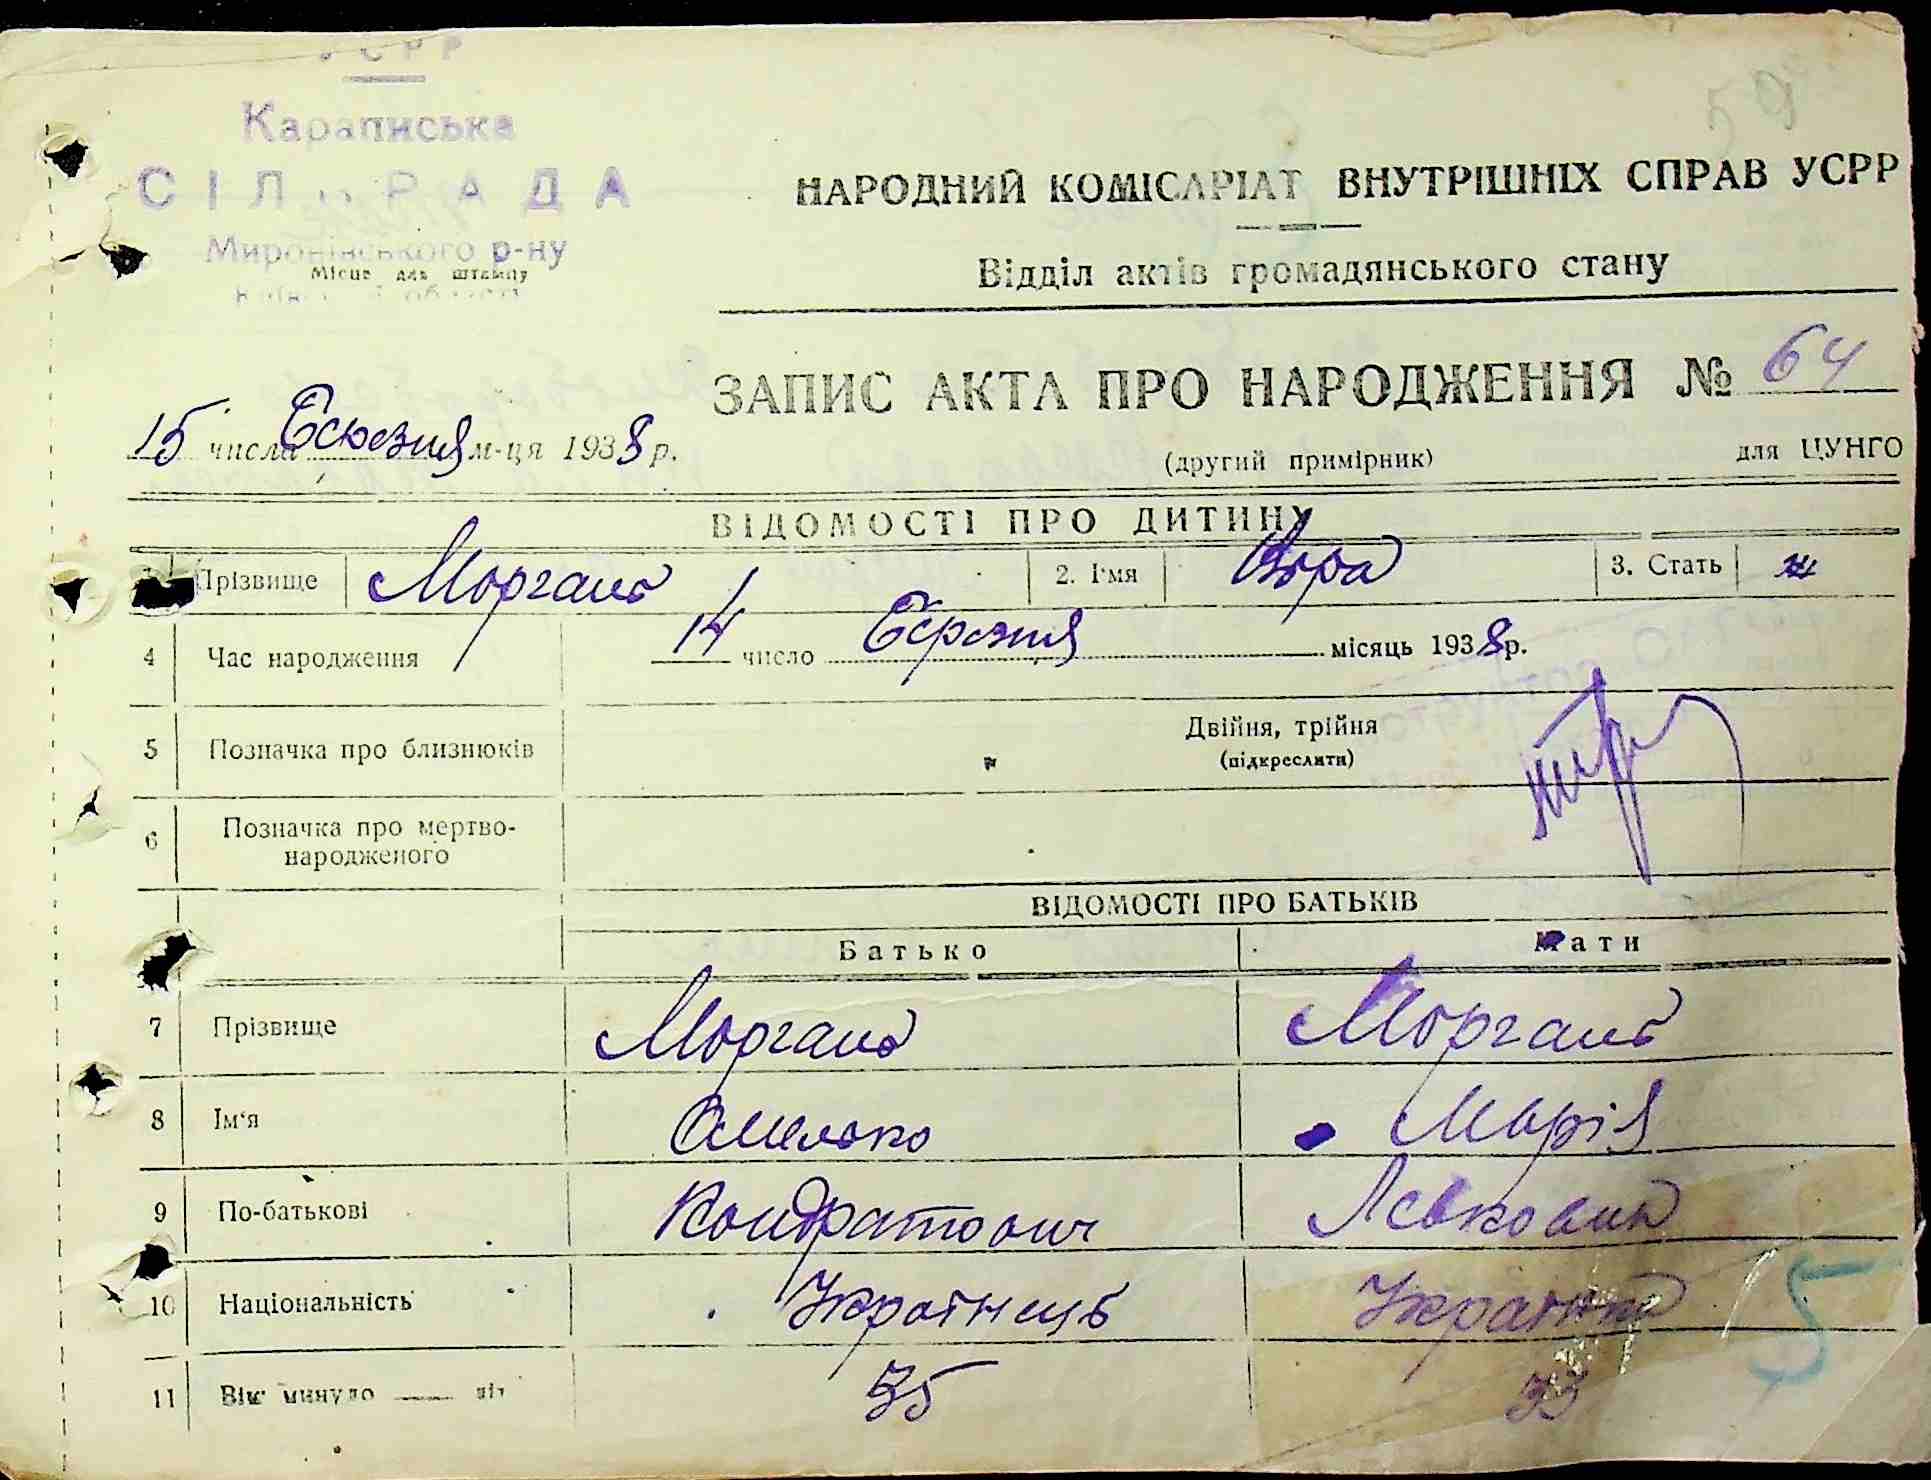 УСРР
59
Караписька
СІЛЬРАДА
Миронівського р-ну
Місце для штампу
Київської області
НАРОДНИЙ КОМІСАРІАТ ВНУТРІШНІХ СПРАВ УСРР
Відділ актів громадянського стану
ЗАПИС АКТА ПРО НАРОДЖЕННЯ № 64
15 числа Березня м-ця 1938 р.
(другий примірник) для ЦУНГО
ВІДОМОСТІ ПРО ДИТИНУ
Прізвище Моргаль 2. І'мя Віра 3. Стать ж
4 Час народження 14 число Березня місяць 1938 р.
5 Позначка про близнюків Двійня, трійня
(підкреслити)
6 Позначка про мертво-
народженого
ВІДОМОСТІ ПРО БАТЬКІВ
Батько Мати
7 Прізвище Моргаль Моргаль
8 Ім'я Омелько Марія
9 По-батькові Кондратович Левковна
10 Національність Українець Українка
11 Вік минуло лїт 35 33
5